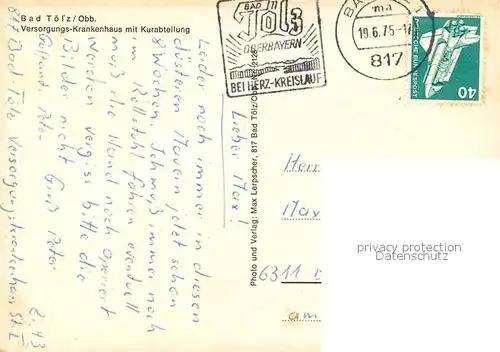 Bad Tölz/Obb.
Versorgungs-Krankenhaus mit Kurabteilung
BAD
Tölz
OBERBAYERN
BEI HERZ-KREISLAUF
BA
ma
19.6.75-1
817
DEUTSCHE BUNDESPOST
40
Lieber Max!
Leider noch immer in diesen
düsteren Mauern jetzt schon
8 Wochen. Ich muß immer noch
im Rollstuhl fahren eventuell
muß die Wand noch operiert
werden vergiss bitte die
Bilder nicht Gruß Peter
Postand. Peter
817 Bad Tölz Versorgungskrankenhaus St. I
Z. 43
Photo und Verlag: Max Lerpscher, 817 Bad Tölz/Obb.
Herr
Max
6311
am
privacy protection
Datenschutz